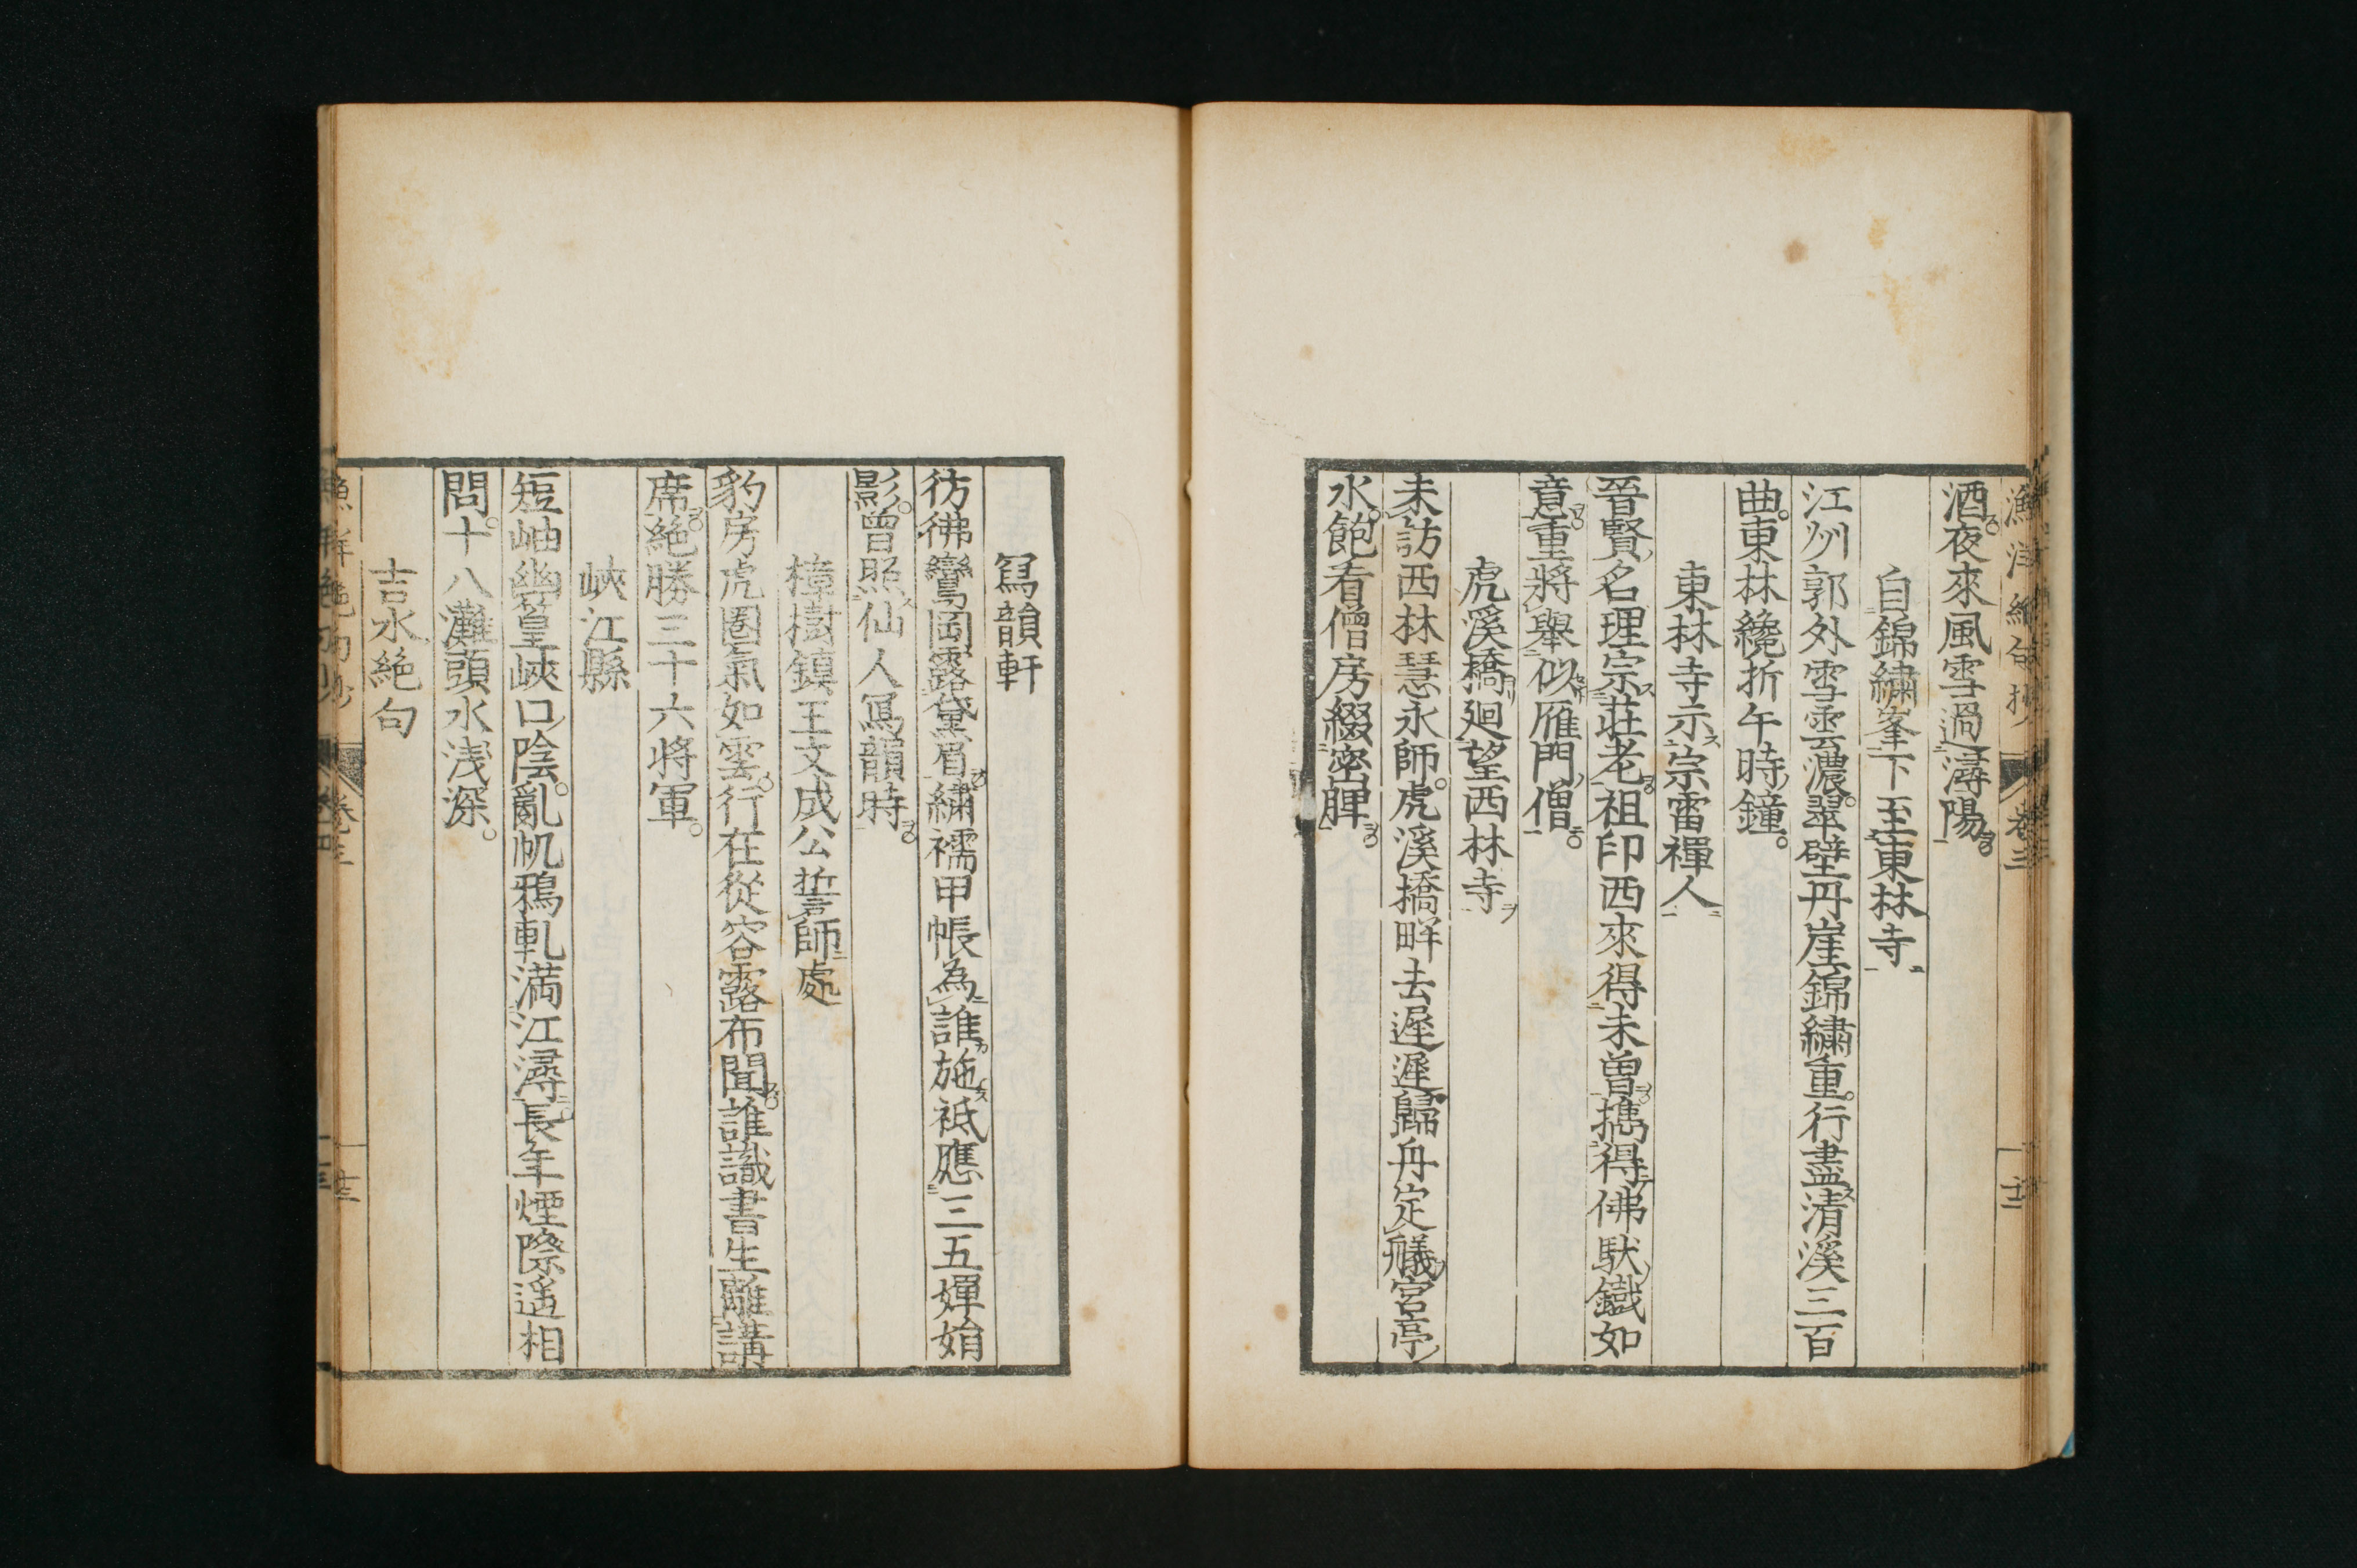 漁洋絶句抄 卷三
酒。夜來風雪過潯陽。
自錦繡峯下至東林寺
江州郭外雪雲濃。翠壁丹崖錦繡重。行盡清溪三百
曲。東林纔折午時鐘。
東林寺示宗雷禪人
晉賢名理宗莊老。祖印西來得未曾。擕得佛馱鐵如
意。重將舉似雁門僧。
虎溪橋廻望西林寺
未訪西林慧永師。虎溪橋畔去遲遲。歸舟定艤宮亭
水。飽看僧房綴密脾。
寫韻軒
彷彿鸞岡露黛眉。繡襦甲帳為誰施。祗應三五嬋娟
影。曾照仙人寫韻時。
樟樹鎮王文成公誓師處
豹房虎圈氣如雲。行在從容露布聞。誰識書生離講
席。絶勝三十六將軍。
峽江縣
短岫幽篁峽口陰。亂帆鴉軋滿江潯。長年煙際遥相
問。十八灘頭水浅深。
吉水絶句
漁洋絶句抄 卷三